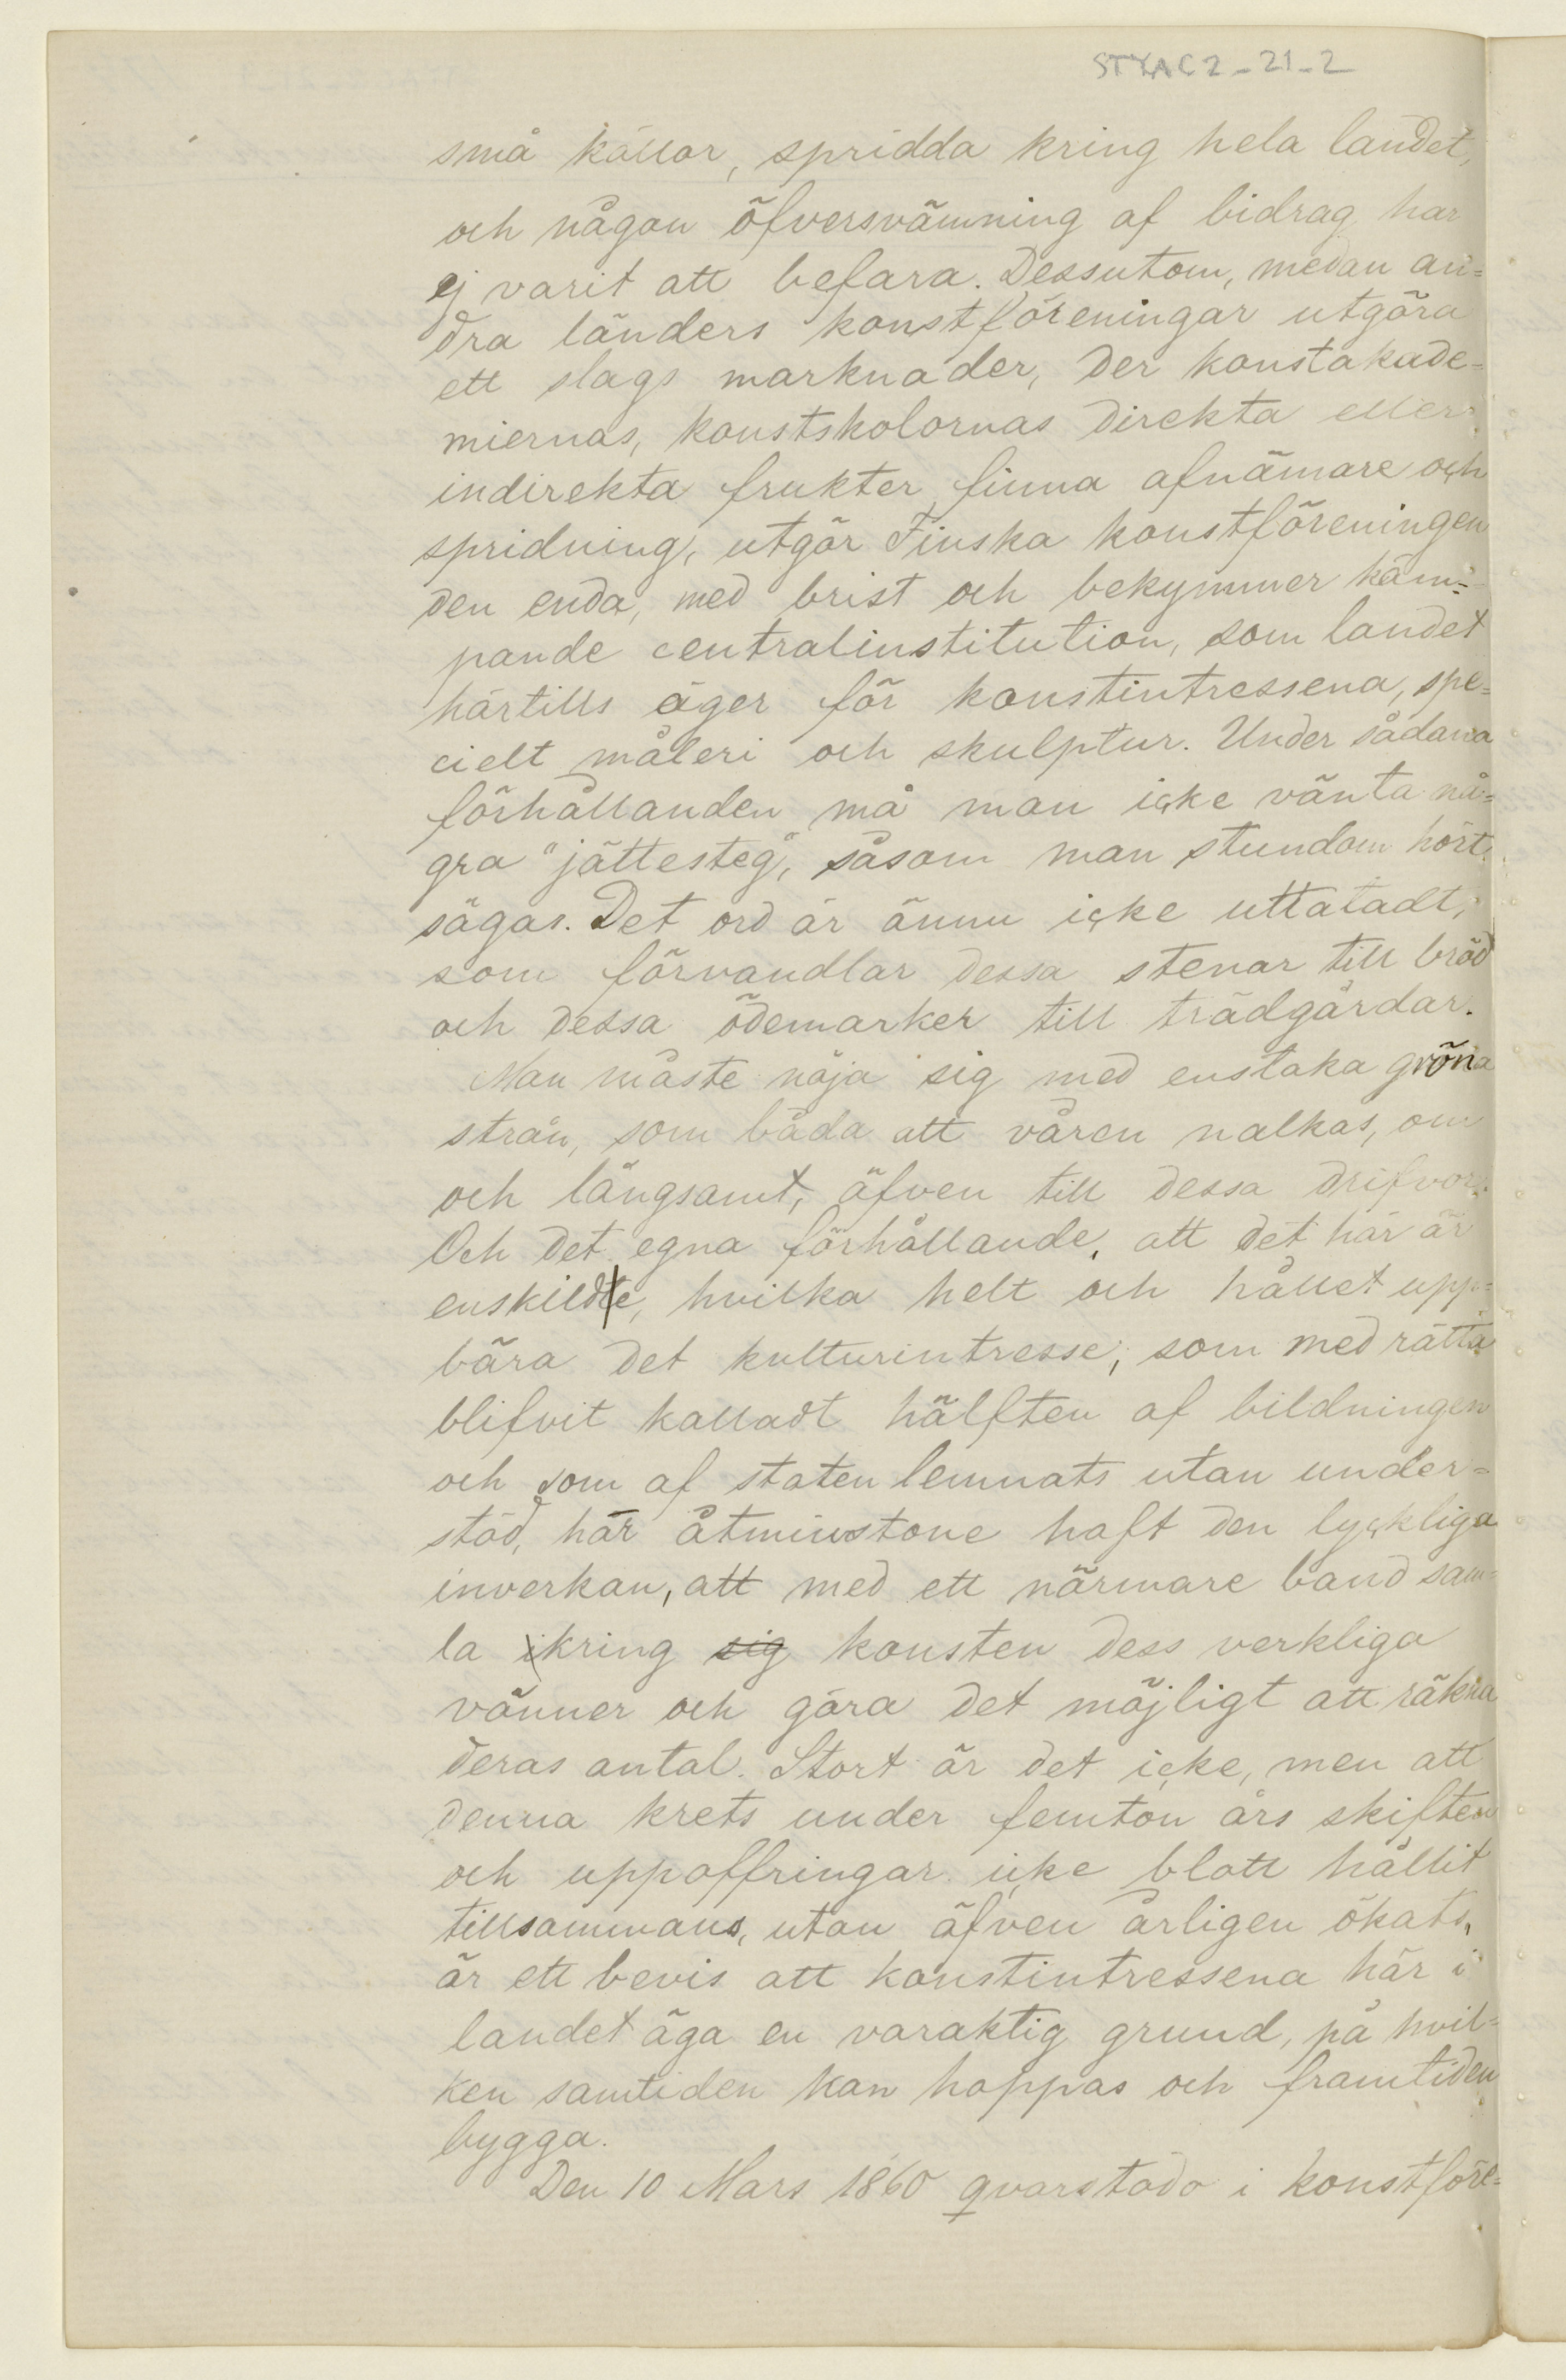 STYAC2-21-2
små källor, spridda kring hela landet,
och någon öfversvämning af bidrag har
ej varit att befara. Dessutom, medan an=
dra länders konstföreningar utgöra
ett slags marknader, der konstakade=
miernas, konstskolornas direkta eller
indirekta frukter finna afnämare och
spridning, utgör Finska konstföreningen
den enda, med brist och bekymmer käm=
pande centralinstitution, som landet
härtills äger för konstintressena, spe=
cielt måleri och skulptur. Under sådana
förhållanden må man icke vänta nå=
gra "jättesteg", såsom man stundom hört
sägas. Det ord är ännu icke uttaladt,
som förvandlar dessa stenar till bröd
och dessa ödemarker till trädgårdar.
Man måste nöja sig med enstaka gröna
strån, som båda att våren nalkas, om
och långsamt, äfven till dessa drifvor.
Och det egna förhållande, att det här är
enskildte, hvilka helt och hållet upp=
bära det kulturintresse, som med rätta
blifvit kalladt hälften af bildningen
och som af staten lemnats utan under=
stöd, har åtminstone haft den lyckliga
inverkan, att med ett närmare band sam=
la ikring sig konsten dess verkliga
vänner och göra det möjligt att räkna
deras antal. Stort är det icke, men att
denna krets under femton års skiften
och uppoffringar icke blott hållit
tillsammans, utan äfven årligen ökats,
är ett bevis att konstintressena här i
landet äga en varaktig grund, på hvil=
ken samtiden kan hoppas och framtiden
bygga.
Den 10 Mars 1860 qvarstodo i konstföre=